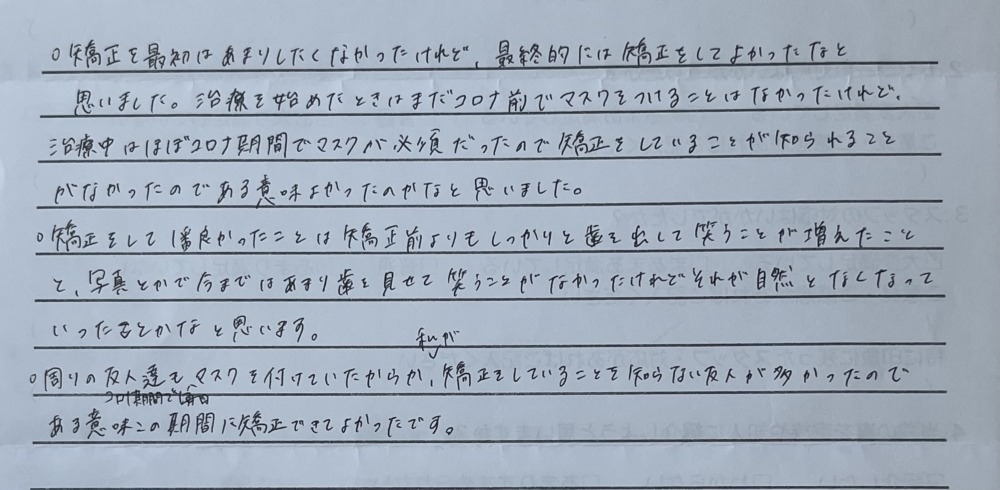 ○矯正を最初はあまりしたくなかったけれど、最終的には矯正をしてよかったなと
思いました。治療を始めたときはまだコロナ前でマスクをつけることはなかったけれど、
治療中はほぼコロナ期間でマスクが必須だったので矯正をしていることが知られること
がなかったのである意味よかったのかなと思いました。
○矯正をして1番良かったことは矯正前よりもしっかりと歯を出して笑うことが増えたこと
と、写真とかで今まではあまり歯を見せて笑うことがなかったけれどそれが自然となくなって
いったことかなと思います。
私が
○周りの友人達もマスクを付けていたからか、矯正をしていることを知らない友人が多かったので
コロナ期間で毎日
ある意味この期間に矯正できてよかったです。